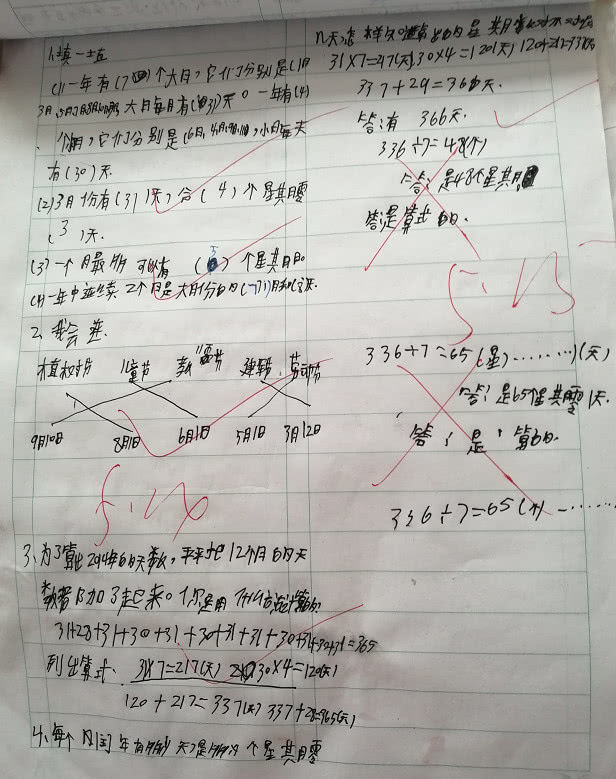 1、填一填
(1)一年有(7)个大月,它们分别是(1月
3月,5月,7月,8月,10月,12月)大月每月有(31)天。一年有(4)
个小月,它们分别是(6月,4月,9月,11月),小月每天
有(30)天.
(2)3月份有(31)天,合(4)个星其月零
(3)天.
(3)一个月最多可以有(5)个星其月日。
(4)一年中连续2个月是大月份的(7)月和(8)天.
2、我会连.
植树节 儿童节 教师节 建军节 劳动节
9月10日 8月1日 6月1日 5月1日 3月12日
5.20
3、为了算出2014年的天数,平平把12个月的天
数都加了起来。你是用什么方法算的
31+28+31+30+31+30+31+31+30+31+30+31=365
列出算式: 31×7=217(天) 30×4=120(天)
120+217=337(天) 337+28=365(天)
4、每个闰年有多少天?是多少个星其月零
31×7=217(天) 30×4=120(天)
337+29=366天.
答:有 366天.
336÷7=48(个)
答:是48个星其月
答:是算式的.
5.13
336÷7=65(星)………)(天)
答:是65个星其零1天.
答:是算的.
336÷7=65(个)……